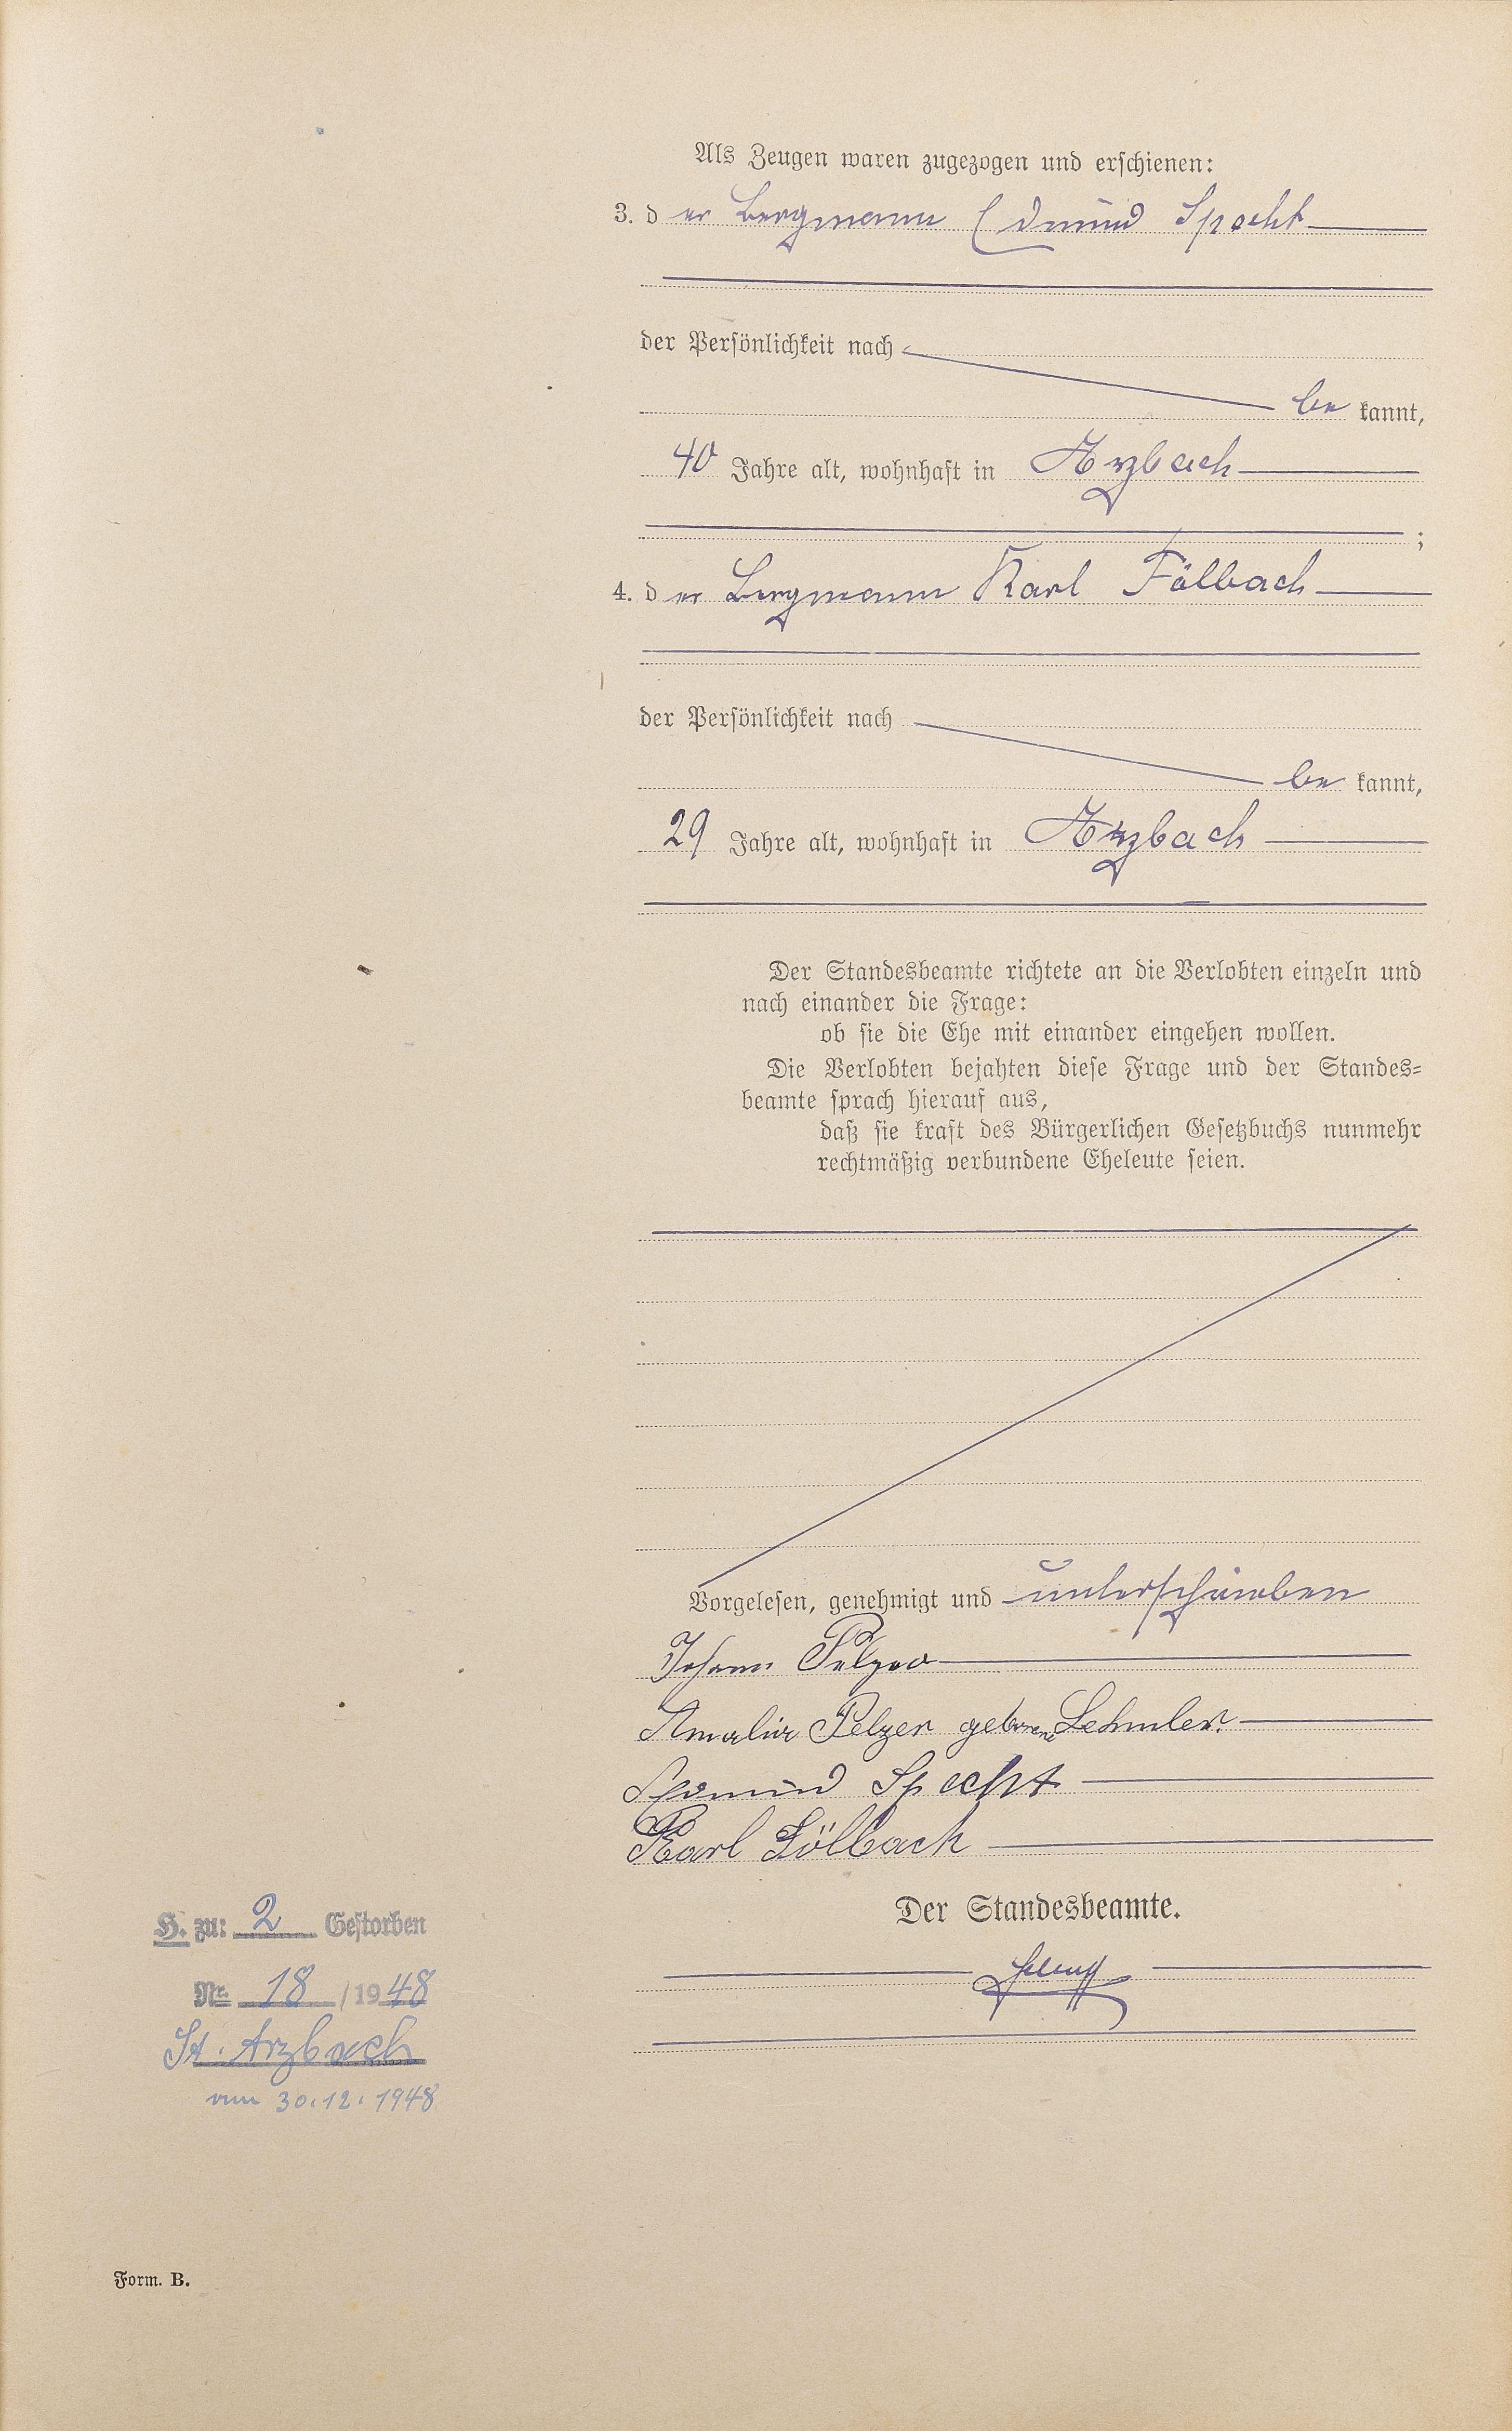 Als Zeugen waren zugezogen und erschienen:
3. der Bergmann Edmund Specht
der Persönlichkeit nach
be kannt,
40 Jahre alt, wohnhaft in Arzbach
;
4. der Bergmann Karl Fölbach
der Persönlichkeit nach
be kannt,
29 Jahre alt, wohnhaft in Arzbach
Der Standesbeamte richtete an die Verlobten einzeln und
nach einander die Frage:
ob sie die Ehe mit einander eingehen wollen.
Die Verlobten bejahten diese Frage und der Standes-
beamte sprach hierauf aus,
daß sie kraft des Bürgerlichen Gesetzbuchs nunmehr
rechtmäßig verbundene Eheleute seien.
Vorgelesen, genehmigt und unterschrieben
Johann Pelzer
Amalia Pelzer geborene Lehmler.
Edmund Specht
Karl Fölbach
Der Standesbeamte.
H. zu: 2 Gestorben
Nr. 18 / 1948
St. Arzbach
vom 30.12.1948
Form. B.